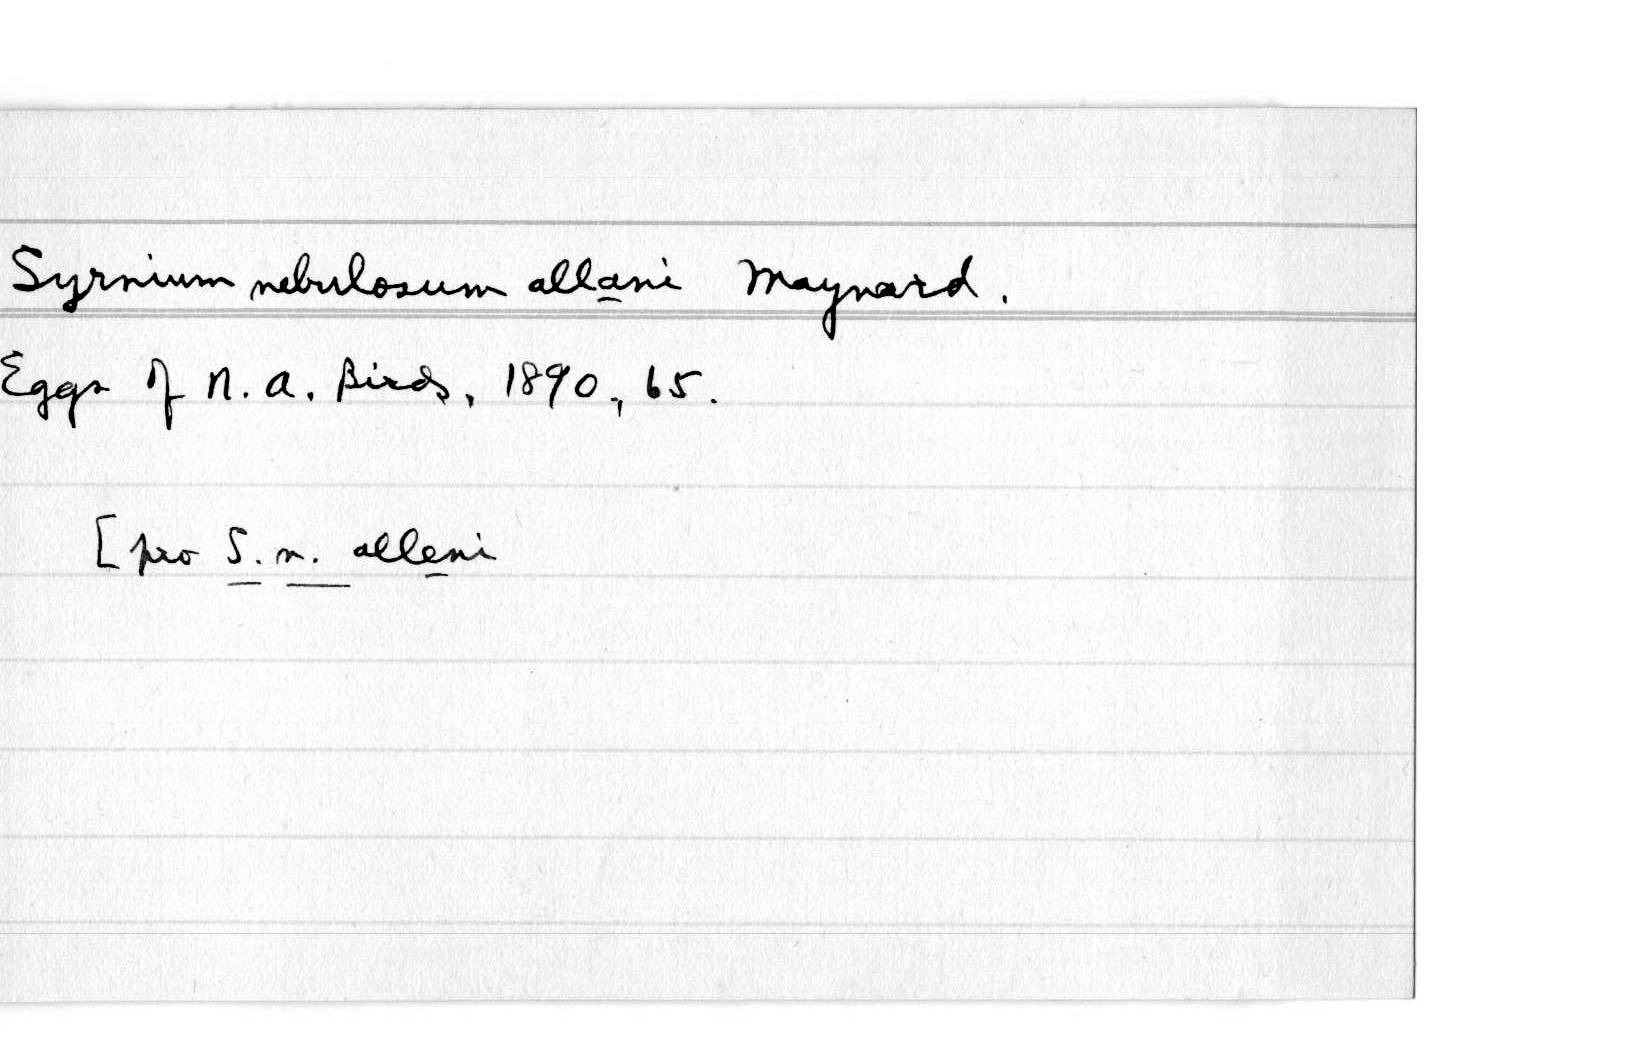 Syrnium nebulosum allani Maynard.
Eggs of N. A. Birds, 1890, 65.
[pro S. n. alleni